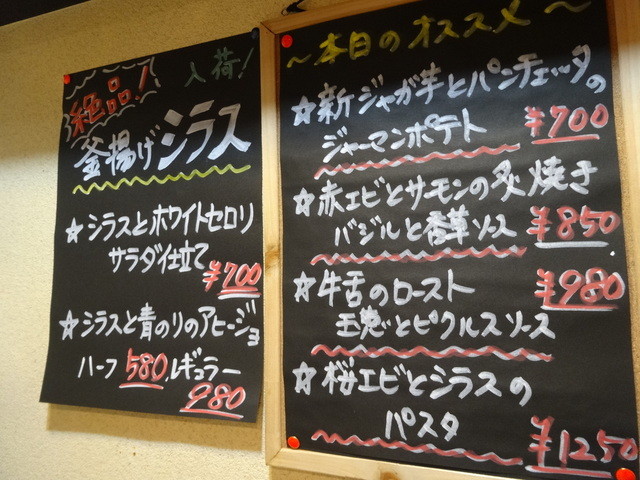 絶品!
入荷!
釜揚げシラス
☆シラスとホワイトセロリ
サラダ仕立て
¥700
☆シラスと青のりのアヒージョ
ハーフ 580 レギュラー
980
〜本日のオススメ〜
☆新ジャガ芋とパンチェッタの
ジャーマンポテト ¥700
☆赤エビとサーモンの炙焼き
バジルと香草ソース ¥850
☆牛舌のロースト ¥980
とピクルスソース
☆桜エビとシラスの
パスタ
¥1250